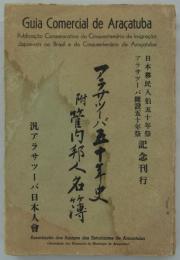 Guia Comercial de Araçatuba
Publicação Comemorativa do Cinquentenário da Imigração
Japonesa no Brasil e do Cinquentenário de Araçatuba
日本移民入伯五十年祭
アラサツーバ開設五十年祭
記念刊行
アラサツーバ五十年史
附 管内邦人名簿
汎アラサツーバ日本人會
Associação dos Amigos dos
de Araçatuba